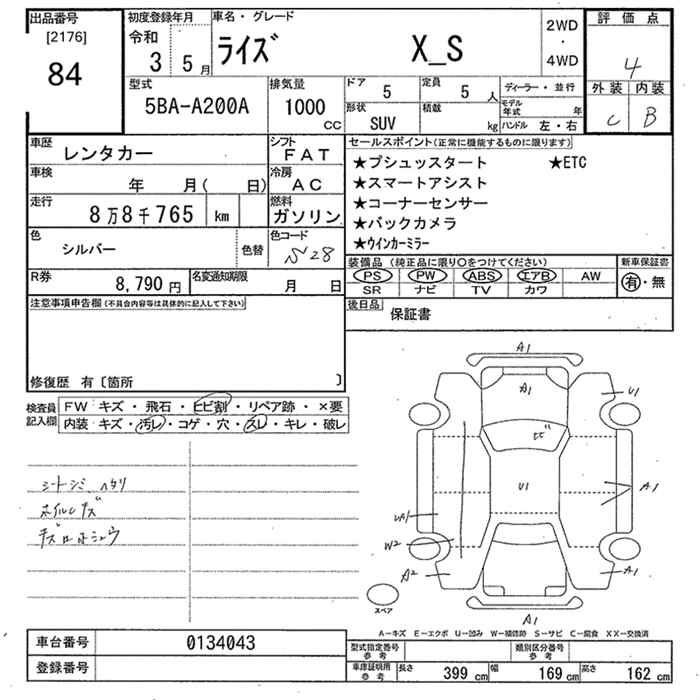 出品番号
[2176]
84
初度登録年月
令和
3 5月
車名・グレード
ライズ X_S
2WD
・
4WD
評価点
4
外装 内装
C B
型式
5BA-A200A
排気量
1000
CC
ドア 5
定員 5 人
形状 SUV
積載 kg
ディーラー・並行
モデル年式 年
ハンドル 左・右
車歴 レンタカー
シフト FAT
車検 年 月( 日)
冷房 AC
走行 8万8千765 km
燃料 ガソリン
色 シルバー
色替
色コード S28
R券 8,790円
名変通知期限 月 日
セールスポイント(正常に機能するものに限ります)
★プシュッスタート ★ETC
★スマートアシスト
★コーナーセンサー
★バックカメラ
★ウインカーミラー
装備品 (純正品に限り○をつけてください)
PS PW ABS エアB AW
SR ナビ TV カワ
新車保証書
有・無
後日品
保証書
注意事項申告欄(不具合内容等は具体的に記入して下さい)
修復歴 有〔箇所 〕
検査員記入欄
FW キズ・飛石・ヒビ割・リペア跡・×要
内装 キズ・汚レ・コゲ・穴・スレ・キレ・破レ
シートシミ ヘタリ
ホイルキズ
A1
A1
U1
ヒビ
U1
A1
W1
W2
A2
A1
A1
スペア
A―キズ E―エクボ U―凹み W―補修跡 S―サビ C―腐食 XX―交換済
車台番号 0134043
登録番号
型式指定番号 参考
類別区分番号 参考
車庫証明用 参考
長さ 399 cm 幅 169 cm 高さ 162 cm